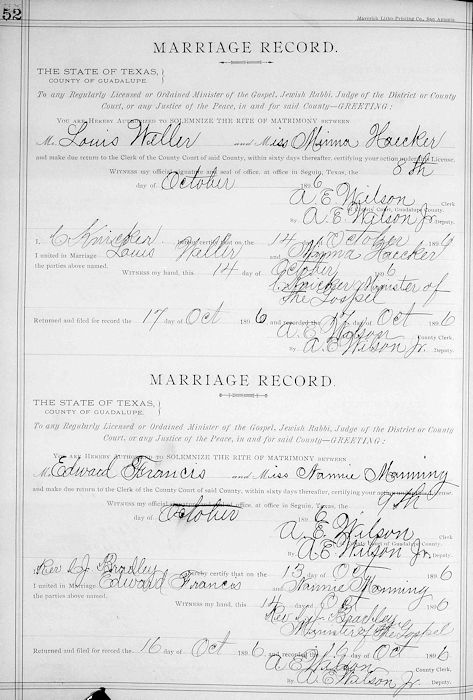 52
Maverick Litho Printing Co., San Antonio
MARRIAGE RECORD.
THE STATE OF TEXAS,
COUNTY OF GUADALUPE.
To any Regularly Licensed or Ordained Minister of the Gospel, Jewish Rabbi, Judge of the District or County
Court, or any Justice of the Peace, in and for said County—GREETING:
YOU ARE HEREBY AUTHORIZED TO SOLEMNIZE THE RITE OF MATRIMONY BETWEEN
Mr. Louis Waller and Miss Minna Haecker
and make due return to the Clerk of the County Court of said County, within sixty days thereafter, certifying your action under this License.
WITNESS my official signature and seal of office, at office in Seguin, Texas, the 8th
day of October 1896
A. E. Wilson Clerk
County Court, Guadalupe County.
By A. E. Wilson Jr. Deputy.
I, C Knicker hereby certify that on the 14 day of October 1896
I united in Marriage Louis Waller and Minna Haecker
the parties above named. WITNESS my hand, this 14 day of October 1896
C. Knicker Minister of
the Gospel
Returned and filed for record the 17 day of Oct 1896, and recorded the 17 day of Oct 1896
A E Wilson County Clerk.
By A. E. Wilson Jr. Deputy.
MARRIAGE RECORD.
THE STATE OF TEXAS,
COUNTY OF GUADALUPE.
To any Regularly Licensed or Ordained Minister of the Gospel, Jewish Rabbi, Judge of the District or County
Court, or any Justice of the Peace, in and for said County—GREETING:
YOU ARE HEREBY AUTHORIZED TO SOLEMNIZE THE RITE OF MATRIMONY BETWEEN
Mr. Edward Francis and Miss Nannie Manning
and make due return to the Clerk of the County Court of said County within sixty days thereafter, certifying your action under this License.
WITNESS my official signature and seal of office, at office in Seguin, Texas, the 9th
day of October 1896
A. E. Wilson Clerk
County Court of Guadalupe County.
By A. E. Wilson Jr. Deputy.
Rev. Bradley hereby certify that on the 13 day of Oct 1896
I united in Marriage Edward Francis and Nannie Manning
the parties above named. WITNESS my hand, this 14 day of Oct 1896
Rev. Bradley
Minister of the Gospel
Returned and filed for record the 16 day of Oct 1896, and recorded the 19 day of Oct 1896
A E Wilson County Clerk.
By A. E. Wilson Jr. Deputy.